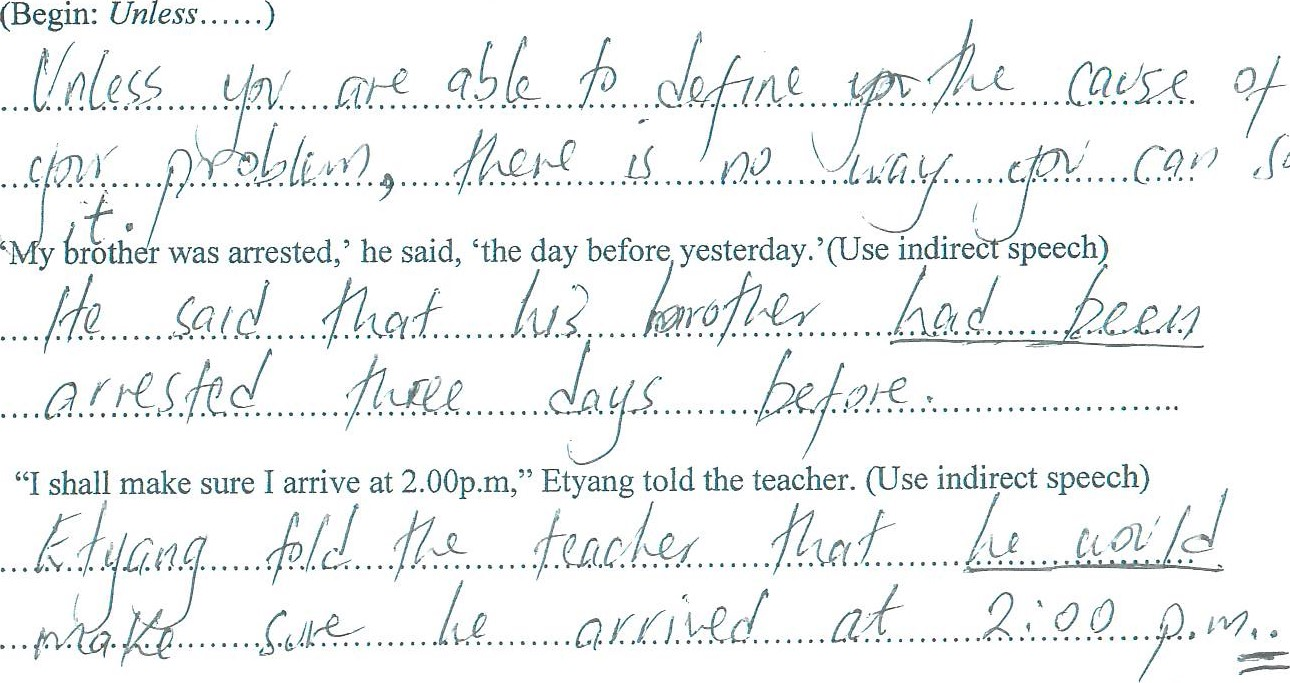 (Begin: Unless......)
Unless you are able to define the cause of
your problem, there is no way you can
it.
‘My brother was arrested,’ he said, ‘the day before yesterday.’(Use indirect speech)
He said that his brother had been
arrested three days before.
“I shall make sure I arrive at 2.00p.m,” Etyang told the teacher. (Use indirect speech)
Etyang told the teacher that he would
make sure he arrived at 2:00 p.m..